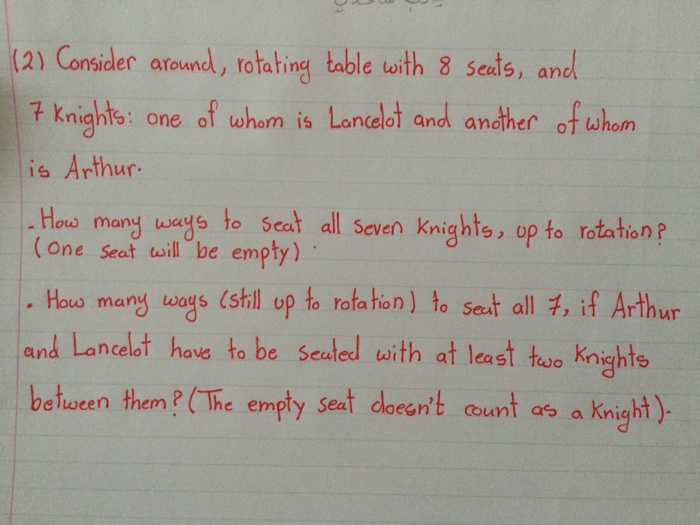 (2) Consider around, rotating table with 8 seats, and
7 Knights: one of whom is Lancelot and another of whom
is Arthur.
- How many ways to seat all seven Knights, up to rotation?
(One seat will be empty).
. How many ways (still up to rotation) to seat all 7, if Arthur
and Lancelot have to be seated with at least two Knights
between them? (The empty seat doesn't count as a Knight).